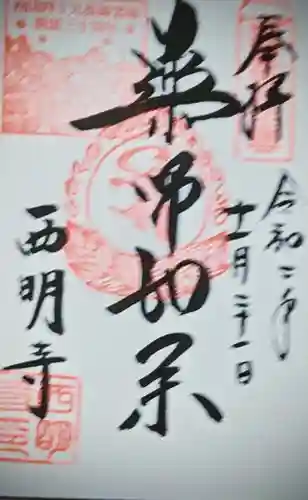 奉拝
令和二年
十一月二十一日
薬師如来
西明寺